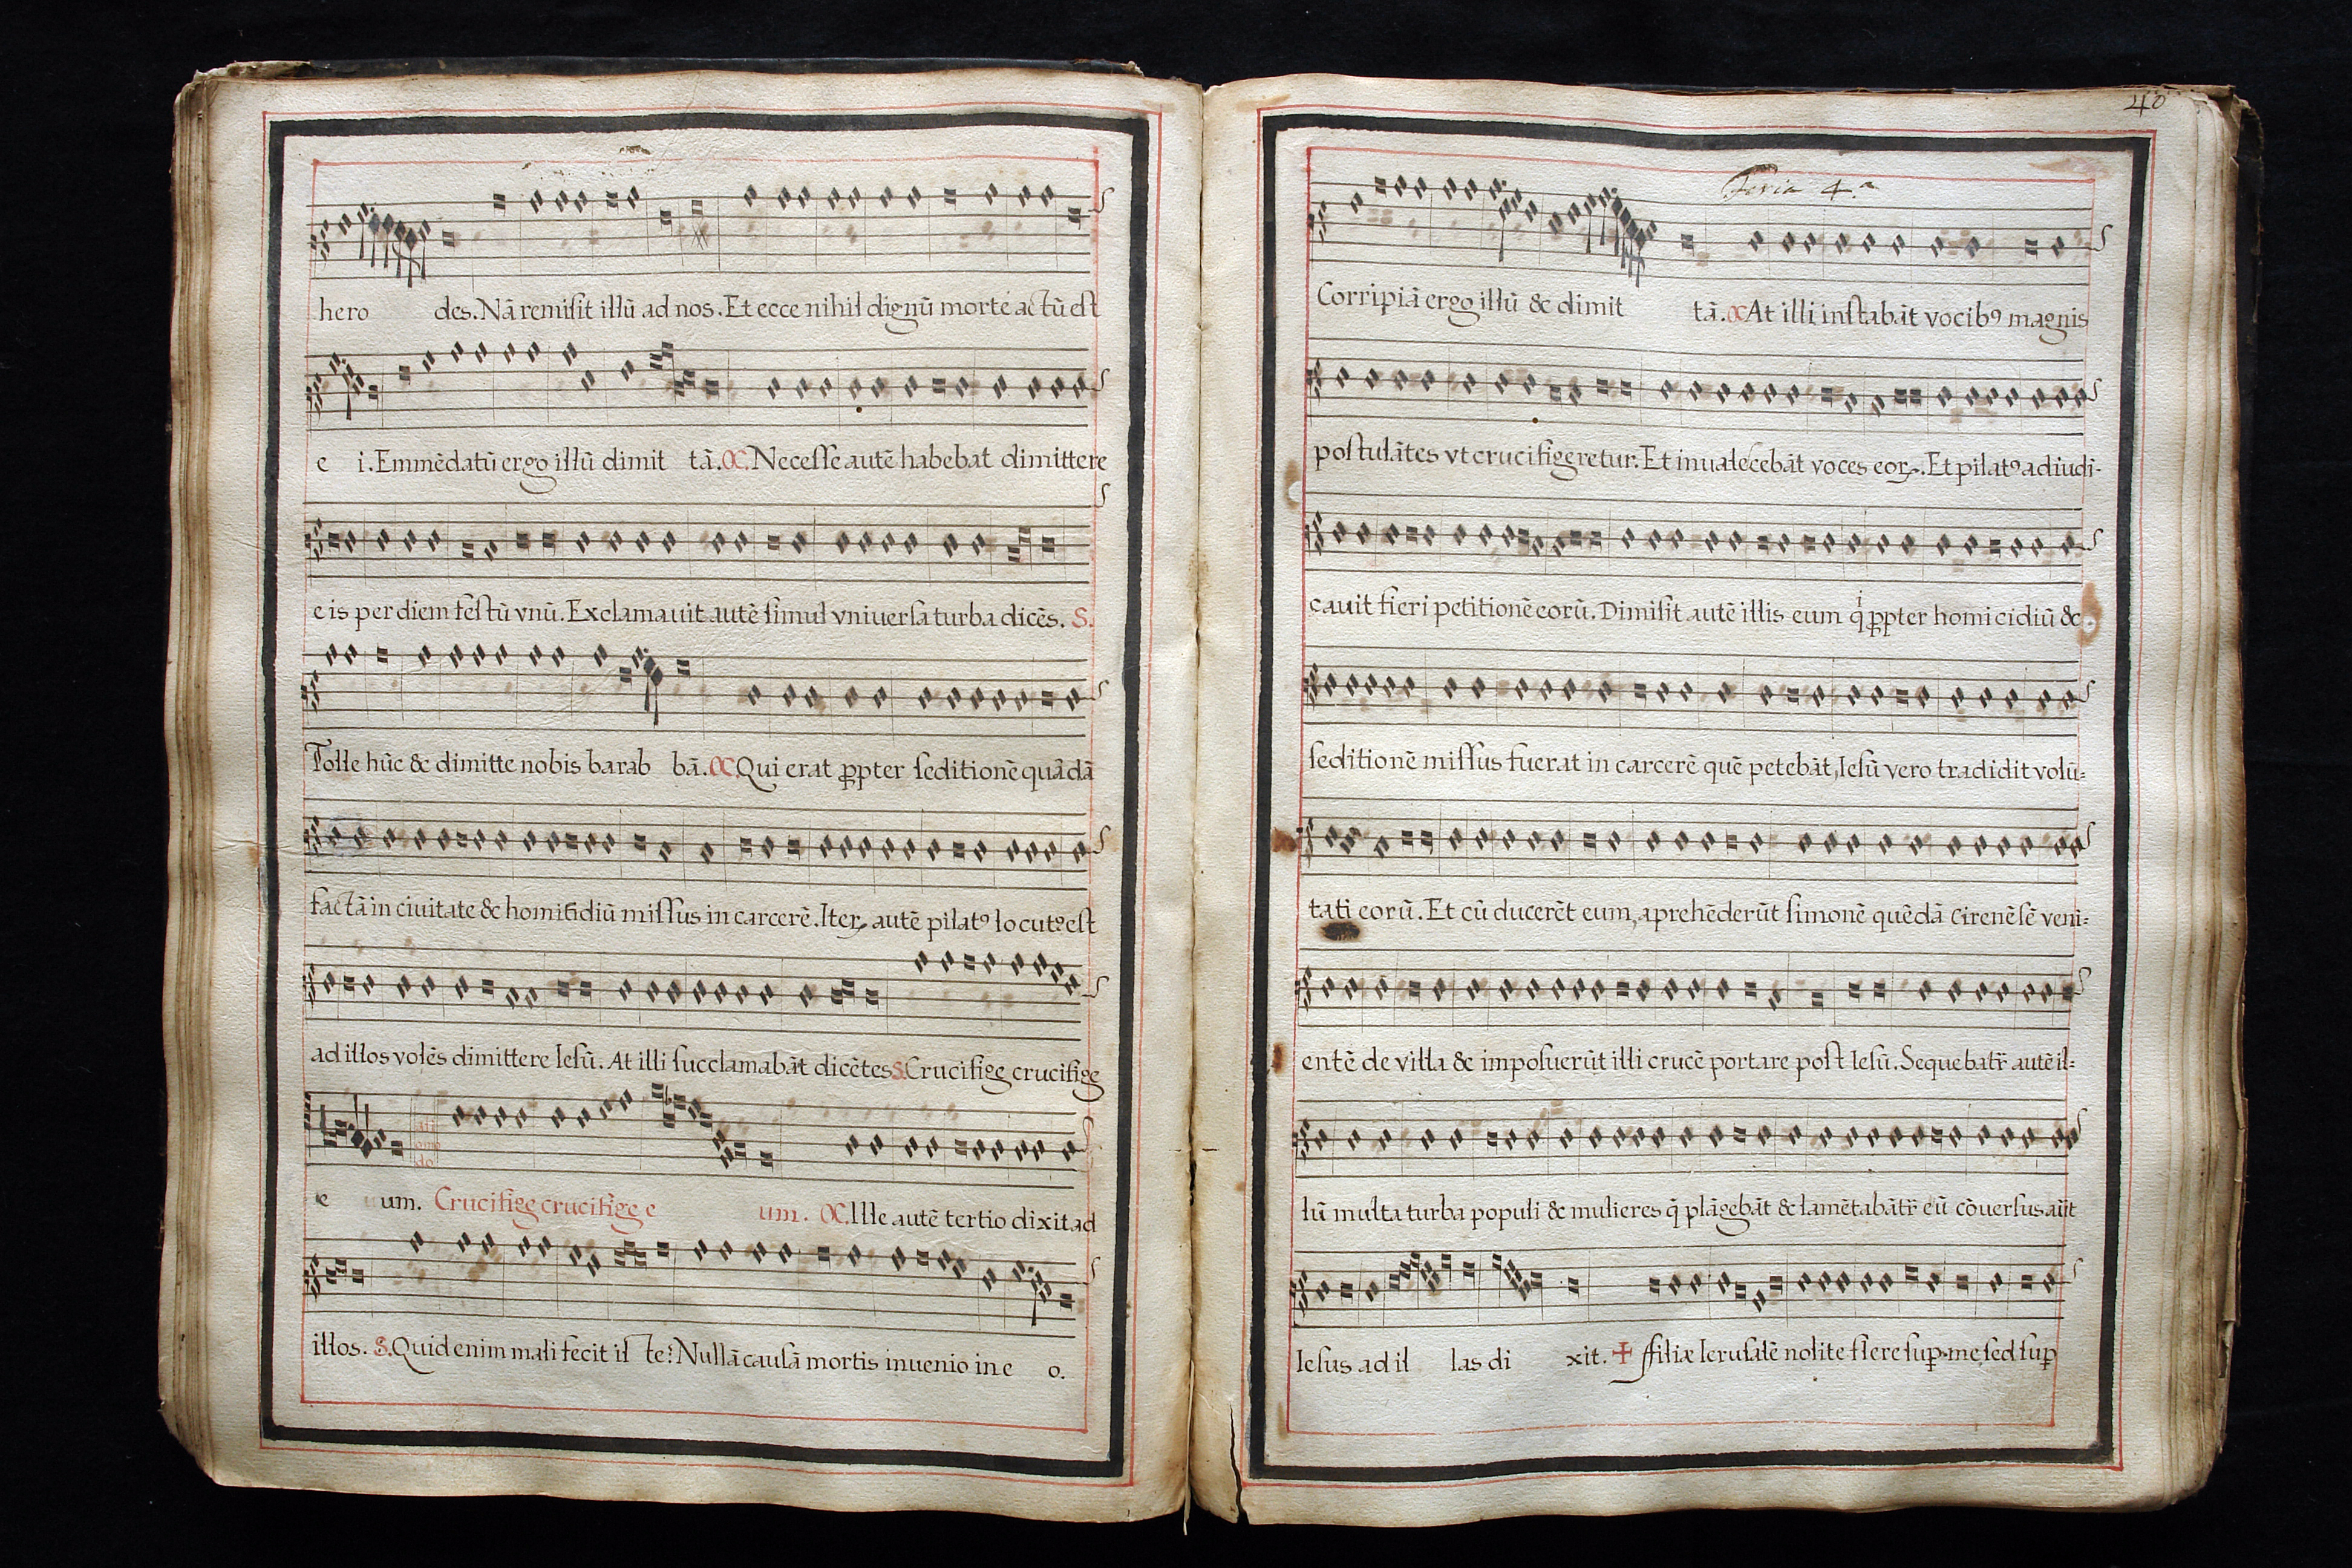 hero des. Nā remiſit illū ad nos. Et ecce nihil dignū morte actū eſt
e i. Emmēdatū ergo illū dimit tā. C. Neceſſe autē habebat dimittere
eis per diem feſtū vnū. Exclamauit autē ſimul vniuerſa turba dicēs. S.
Tolle hūc & dimitte nobis barab bā. C Qui erat ꝓpter ſeditionē quādā
factā in ciuitate & homicidiū miſſus in carcerē. Iteꝝ autē pilatꝰ locutꝰ eſt
ad illos volēs dimittere Ieſū. At illi ſucclamabāt dicētes S. Crucifige crucifige
e um. Crucifige crucifige e um. C. Ille autē tertio dixit ad
illos. S. Quid enim mali fecit il te? Nullā cauſā mortis inuenio in e o.
40
Feria 4.ª
Corripiā ergo illū & dimit tā. C At illi inſtabāt vocibꝰ magnis
poſtulātes vt crucifigeretur. Et inualeſcebāt voces eoꝝ. Et pilatꝰ adiudi-
cauit fieri petitionē eorū. Dimiſit autē illis eum qͥ ꝓpter homicidiū &
ſeditionē miſſus fuerat in carcerē quē petebāt, Ieſū vero tradidit volū=
tati eorū. Et cū ducerēt eum, aprehēderūt ſimonē quēdā Cirenēſē veni=
entē de villa & impoſuerūt illi crucē portare poſt Ieſū. Sequebatr̄ autē il=
lū multa turba populi & mulieres q̄ plāgebāt & lamētabātr̄ eū cōuerſus aūt
Ieſus ad il las di xit. ✠ ffiliæ Ieruſalē nolite flere ſuꝑ me, ſed ſuꝑ